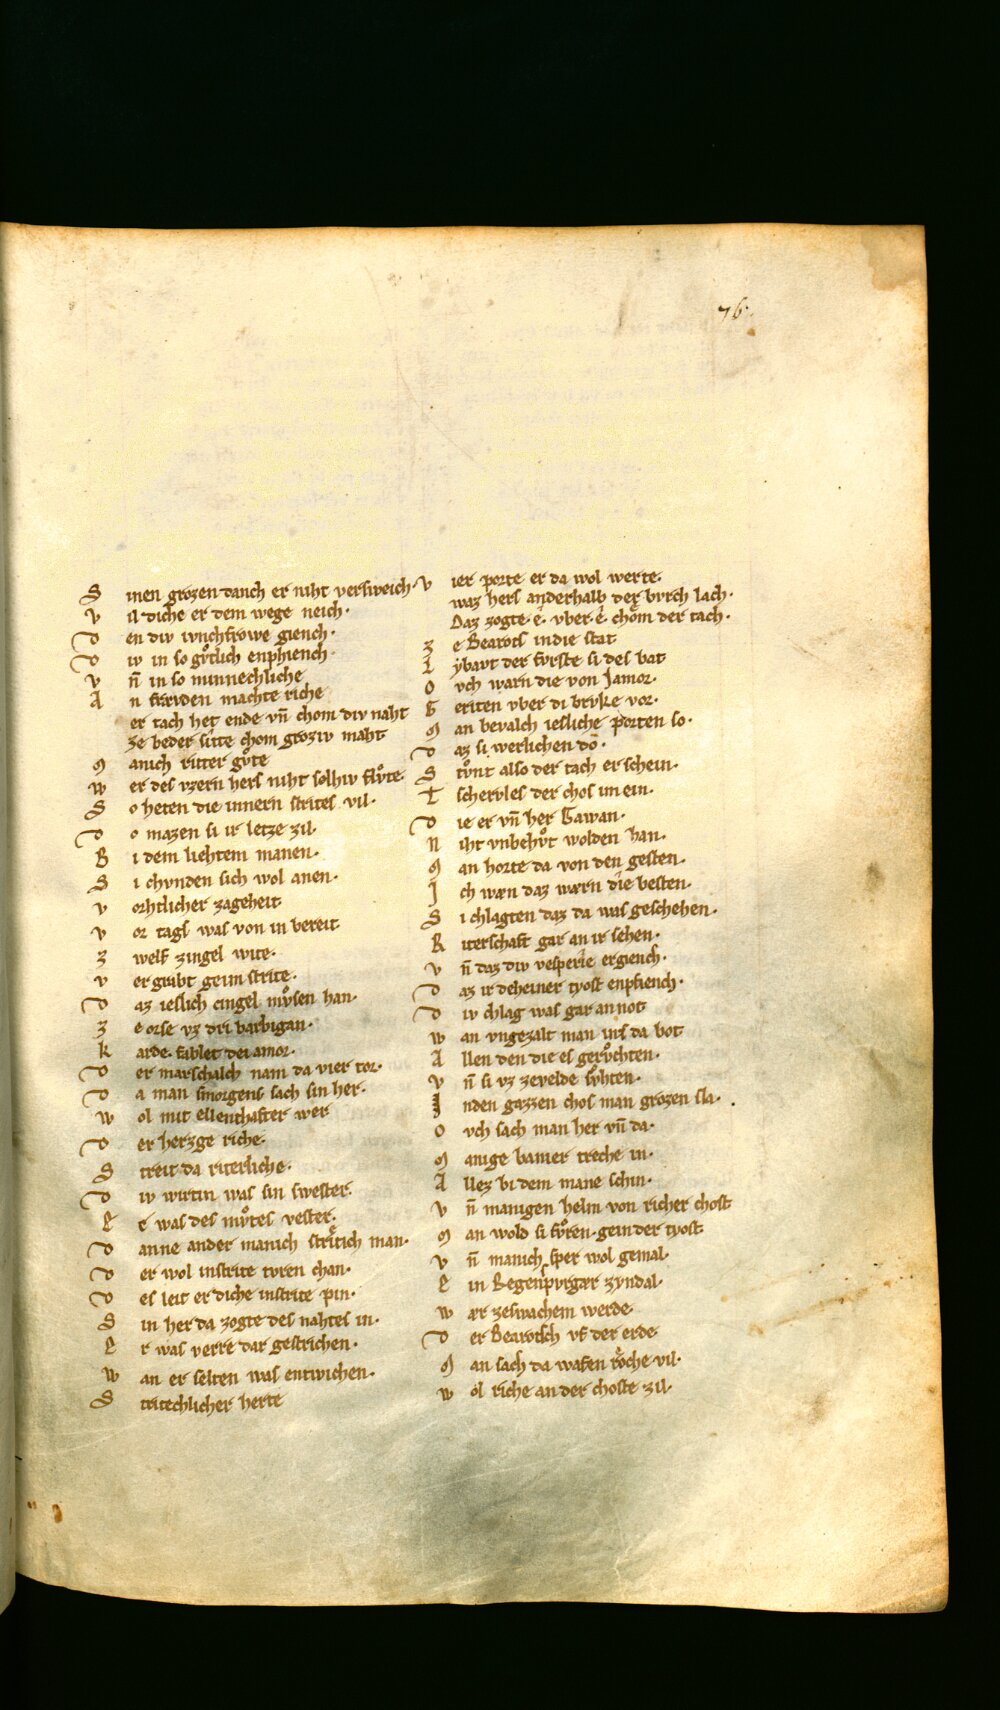 76.
S inen grozen danch er niht versweich.
v il diche er dem wege neich.
D en div ivnchfrowe giench.
D iv in so gvͦtlich enphiench.
v n̄ in so minnechliche
A n frivden machte riche
er tach het ende vn̄ chom div naht
Ze beder sitte chom groziv maht
M anich ritter gvͦte
w er des vzern hers niht solhiv flvͦte.
S o heten die innern strites vil.
D o mazen si ir letze zil.
B i dem liehtem manen.
S i chvnden sich wol anen.
v orhtlicher zageheit
v or tags was von in bereit
Z welf zingel wite.
v ergrabt gein strite.
D az ieslich cingel mvͦsen han.
Z e orse vz dri barbigan.
K arde. fablet dei amor.
D er marschalch nam da vier tor.
D a man smorgens sach sin her.
w ol mit ellenthafter wer
D er herzge riche.
S treit da riterliche.
D iv wirtin was sin swester.
E r was des mvͦtes vester.
D anne ander manich stritich man.
D er wol instrite tvren chan.
D es leit er diche instrite pin.
S in her da zogte des nahtes in.
E r was verre dar gestrichen.
w an er selten was entwichen.
S tritechlicher herte
v ier porte er da wol werte.
waz hers anderhalb der bvrch lach.
Daz zogte. e. vber. e. chom der tach.
Z e Bearots indie stat
L ybavt der fvrste si des bat
O vch warn die von Jamor.
G eriten vber di brvke vor.
M an bevalch iesliche porten so.
D az si werlichen do.
S tvͦnt also der tach erschein.
T schervles der chos im ein.
D ie er vn̄ her Gawan.
N iht vnbehvͦt wolden han.
M an horte da von den gesten.
J ch wæn daz wærn die besten.
S i chlagten daz da was geschehen.
R iterschaft gar an ir sehen.
v n̄ daz div vesperie ergiench.
D az ir deheiner tyost enpfiench.
D iv chlag was gar an not
w an vngezalt man ins da bot
A llen den die es gervͦchten.
v n̄ si vz zevelde svͦhten.
I nden gazzen chos man grozen sla.
O vch sach man her vn̄ da.
M anige banier treche in.
A llez bi dem mane schin.
v n̄ manigen helm von richer chost
M an wold si fvͦren. gein der tyost
v n̄ manich sper wol gemal.
E in Regenspvrgær zyndal.
w ær zeswachem werde.
D er Bearotsch vf der erde
M an sach da wafen roche vil.
w ol riche an der choste zil.